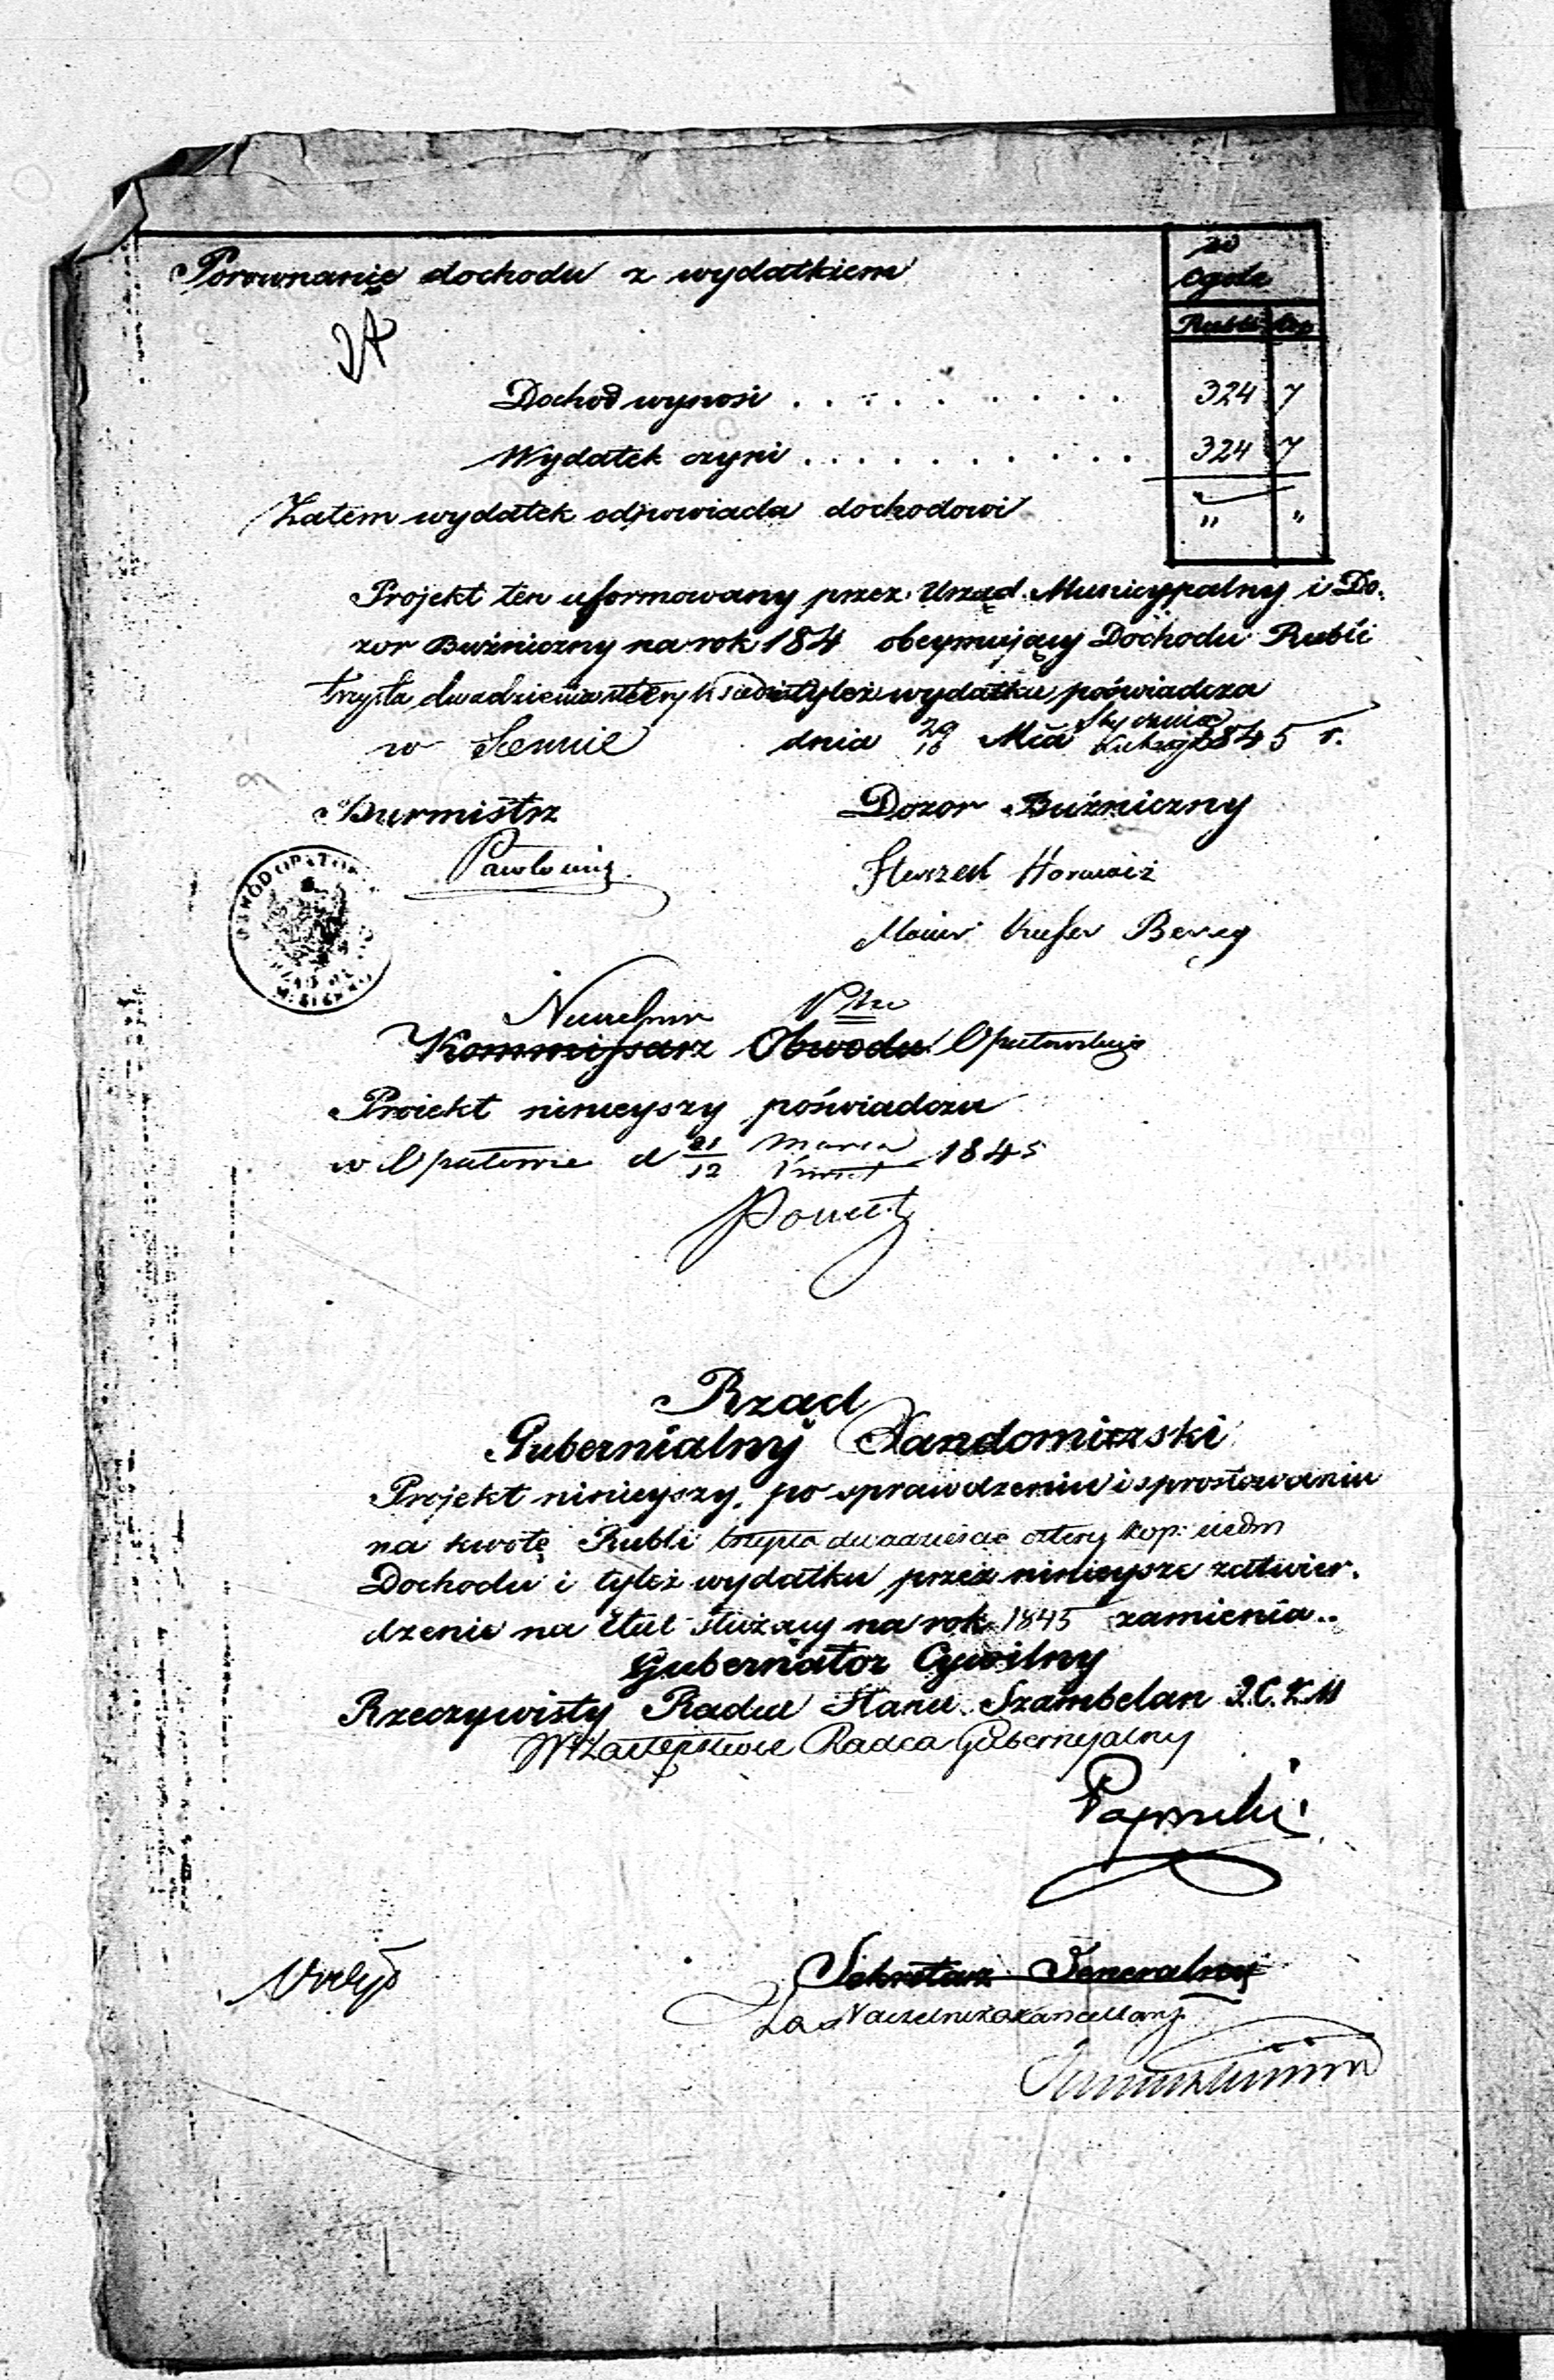 Porownanie dochodu z wydatkiem
w
ogole
Rubli kop
Dochod wynosi . . . . . . . . . 324 7
Wydatek czyni . . . . . . . . . . . 324 7
Zatem wydatek odpowiada dochodowi " "
Projekt ten uformowany przez Urząd Municypalny i Do-
zor Buźniczny na rok 184 obeymujący Dochodu Rubli
trzysta dwadzieścia cztery k siedm tyleż wydatku poświadcza
w Sennie dnia Mca Stycznia
Lutego 1845 r.
Burmistrz Dozor Buźniczny
Pawłowicz
Horowicz
Bereg
Naczelnik Ptu
Kommissarz Obwodu Opatowskiego
Proiekt ninieyszy poświadcza
w Opatowie d 21/12 Marca 1845
Rząd
Gubernialny Sandomierski
Projekt ninieyszy, po sprawdzeniu i sprostowaniu
na kwotę Rubli trzysta dwadzieścia cztery kop: siedm
Dochodu i tyleż wydatku przez ninieysze zatwier-
dzenie na Etat służący na rok 1845 zamienia..
Gubernator Cywilny
Rzeczywisty Radca Stanu Szambelan J.C.K.M
W Zastępstwie Radca Gubernyalny
Sekretarz Generalny
Za Naczelnika Kancellaryi